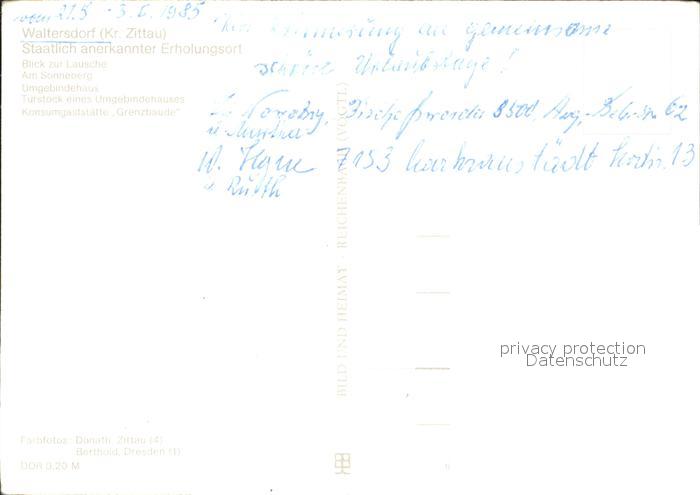 vom 21.5 - 3.6.1985
Zur Erinnerung an gemeinsame
schöne Urlaubstage!
Waltersdorf (Kr. Zittau)
Staatlich anerkannter Erholungsort
Blick zur Lausche
Am Sonneberg
Umgebindehaus
Türstock eines Umgebindehauses
Konsumgaststätte „Grenzbaude"
Nowotny, Bischofswerda 8500, Aug.-Beb.-Str. 62
u.
W. 7153 Markranstädt 13
u. Ruth
BILD UND HEIMAT · REICHENBACH (VOGTL)
privacy protection
Datenschutz
Farbfotos: Donath, Zittau (4)
Berthold, Dresden (1)
DDR 0,20 M